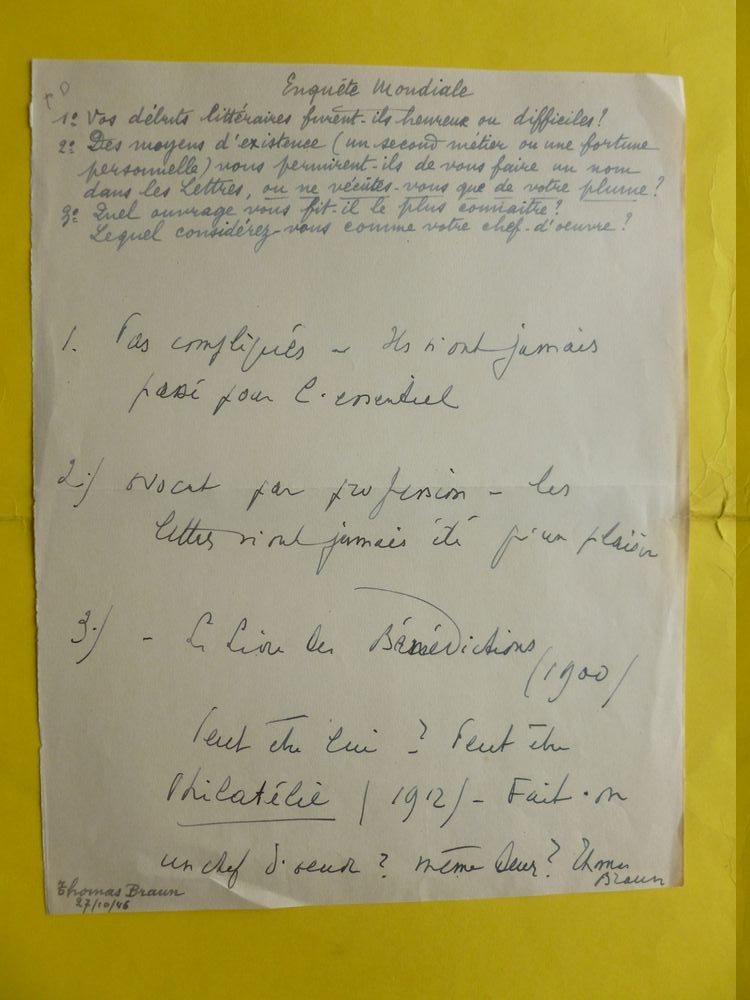 Enquête Mondiale
1º Vos débuts littéraires furent-ils heureux ou difficiles?
2º Des moyens d'existence (un second métier ou une fortune
personnelle) vous permirent-ils de vous faire un nom
dans les Lettres, ou ne vécûtes-vous que de votre plume?
3º Quel ouvrage vous fit-il le plus connaître?
Lequel considérez-vous comme votre chef-d'oeuvre?
1. Pas compliqués - Ils n'ont jamais
passé pour l'essentiel
2.) avocat par profession - les
lettres n'ont jamais été qu'un plaisir
3.) - Le Livre des Bénédictions
(1900)
Peut être lui ? Peut être
Philatélie (1912) - Fait-on
un chef d'oeuvre ? même deux ? Thomas
Braun
Thomas Braun
27/10/46